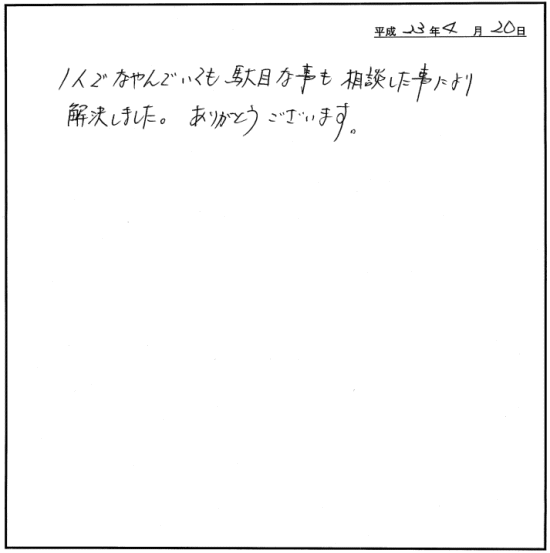 平成 23 年 4 月 20 日
1人でなやんでいても駄目な事も相談した事により
解決しました。ありがとうございます。